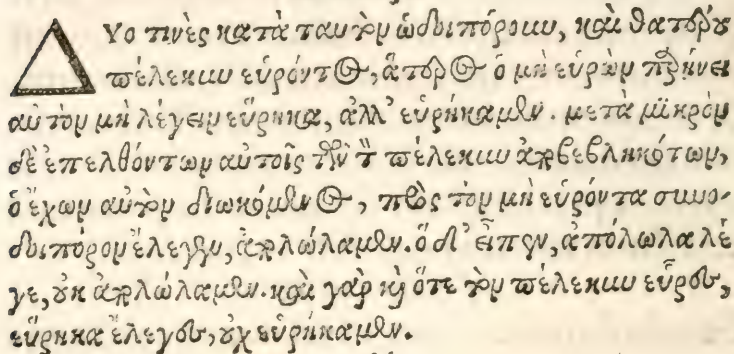 ΔΥο τινὲς κατὰ ταυτὸν ὡδοιπόρουν, καὶ θατέρου
πέλεκυν εὑρόντος, ἅτερος ὁ μὴ εὑρὼν παρήνει
αὐτὸν μὴ λέγειν εὕρηκα, ἀλλ' εὑρήκαμεν. μετὰ μικρὸν
δὲ ἐπελθόντων αὐτοῖς τῶν τὸν πέλεκυν ἀποβεβληκότων,
ὁ ἔχων αὐτὸν διωκόμενος, πρὸς τὸν μὴ εὑρόντα συνο-
δοιπόρον ἔλεγεν, ἀπολώλαμεν. ὁ δ' εἶπεν, ἀπόλωλα λέ
γε, οὐκ ἀπολώλαμεν. καὶ γὰρ καὶ ὅτε τὸν πέλεκυν εὗρες,
εὕρηκα ἔλεγες, οὐχ εὑρήκαμεν.